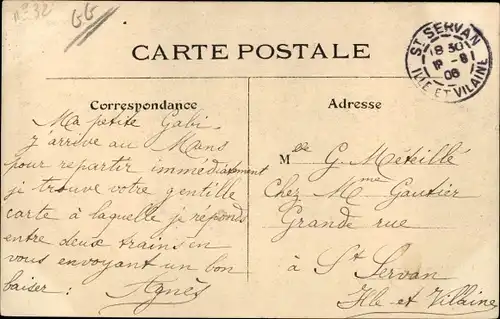 nº 32
GG
CARTE POSTALE
ST SERVAN
18 30
8
06
ILLE ET VILAINE
Correspondance
Adresse
Ma petite Gabi.
j'arrive au Mans
pour repartir immédiatement
je trouve votre gentille
carte à laquelle je réponds
entre deux trains en
vous envoyant un bon
baiser : Agnès
Mlle G. Méteillé
Chez Mme Gautier
Grande rue
à St Servan
Ille et Vilaine